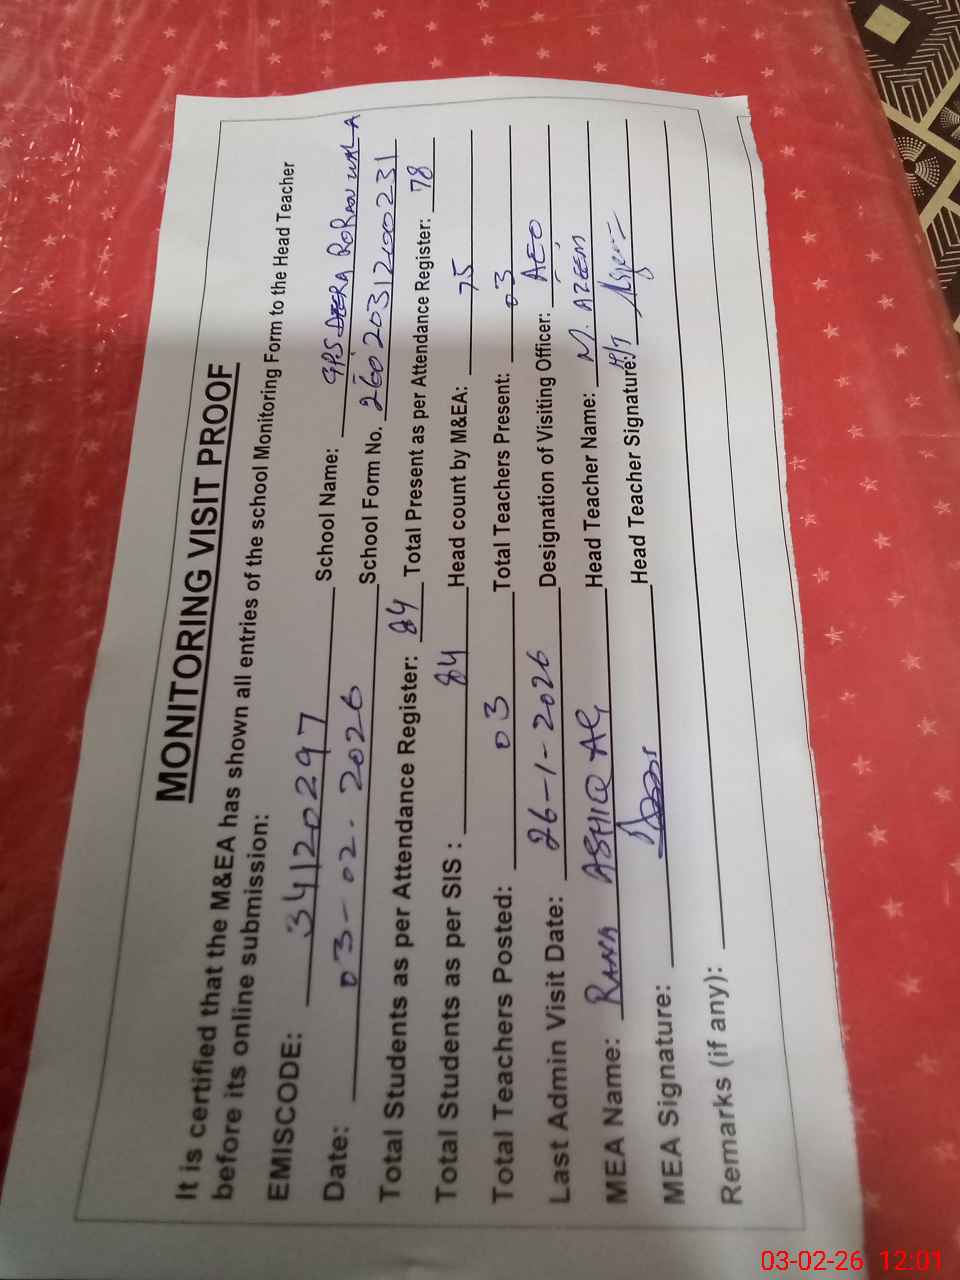 MONITORING VISIT PROOF
It is certified that the M&EA has shown all entries of the school Monitoring Form to the Head Teacher
before its online submission:
EMISCODE: 34120297 School Name: GPS DERA RORAN WALA
Date: 03-02-2026 School Form No. 2602031200231
Total Students as per Attendance Register: 84 Total Present as per Attendance Register: 78
Total Students as per SIS: 84 Head count by M&EA: 75
Total Teachers Posted: 03 Total Teachers Present: 03
Last Admin Visit Date: 26-1-2026 Designation of Visiting Officer: AEO
MEA Name: RANA ASHIQ ALI Head Teacher Name: M. AZEEM
MEA Signature: Head Teacher Signature: H/T
Remarks (if any):
03-02-26 12:01